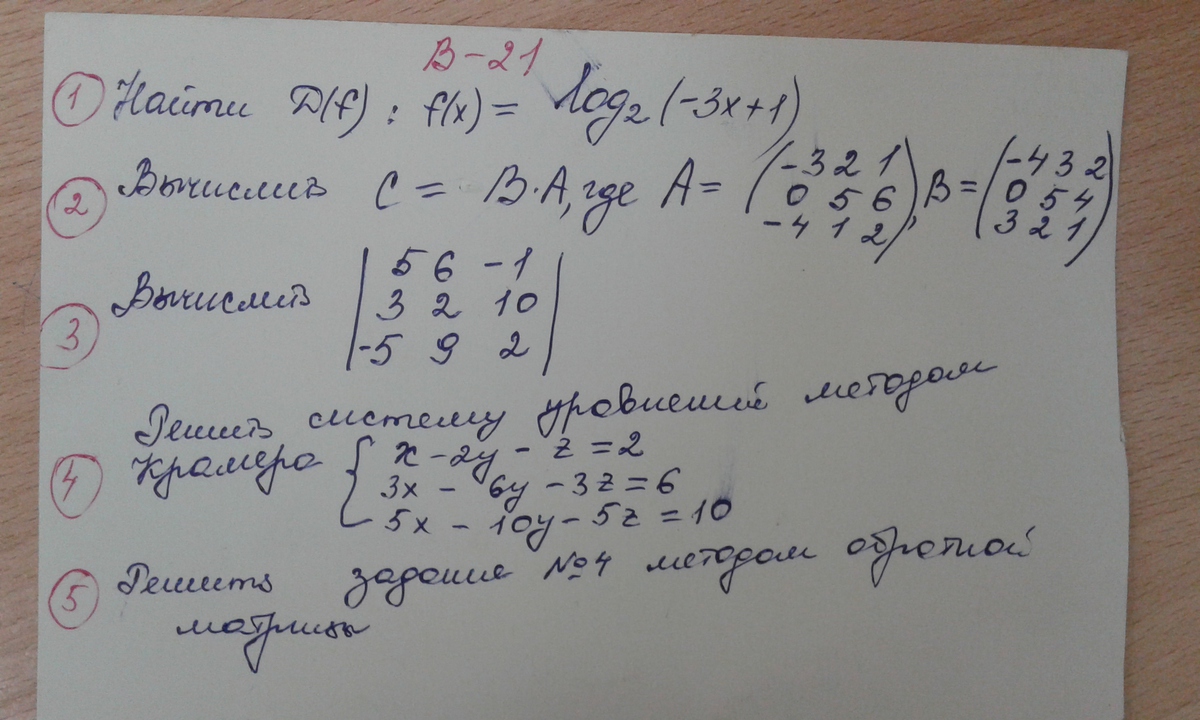 В-21
① Найти D(f) : f(x) = log₂(-3x+1)
② Вычислить C = B·A, где A = (-3 2 1), B = (-4 3 2)
0 5 6 0 5 4
-4 1 2 3 2 1
③ Вычислить | 5 6 -1 |
3 2 10
-5 9 2
Решить систему уровнений методом
④ Крамера { x - 2y - z = 2
3x - 6y - 3z = 6
5x - 10y - 5z = 10
⑤ Решить задание №4 методом обратной
матрицы